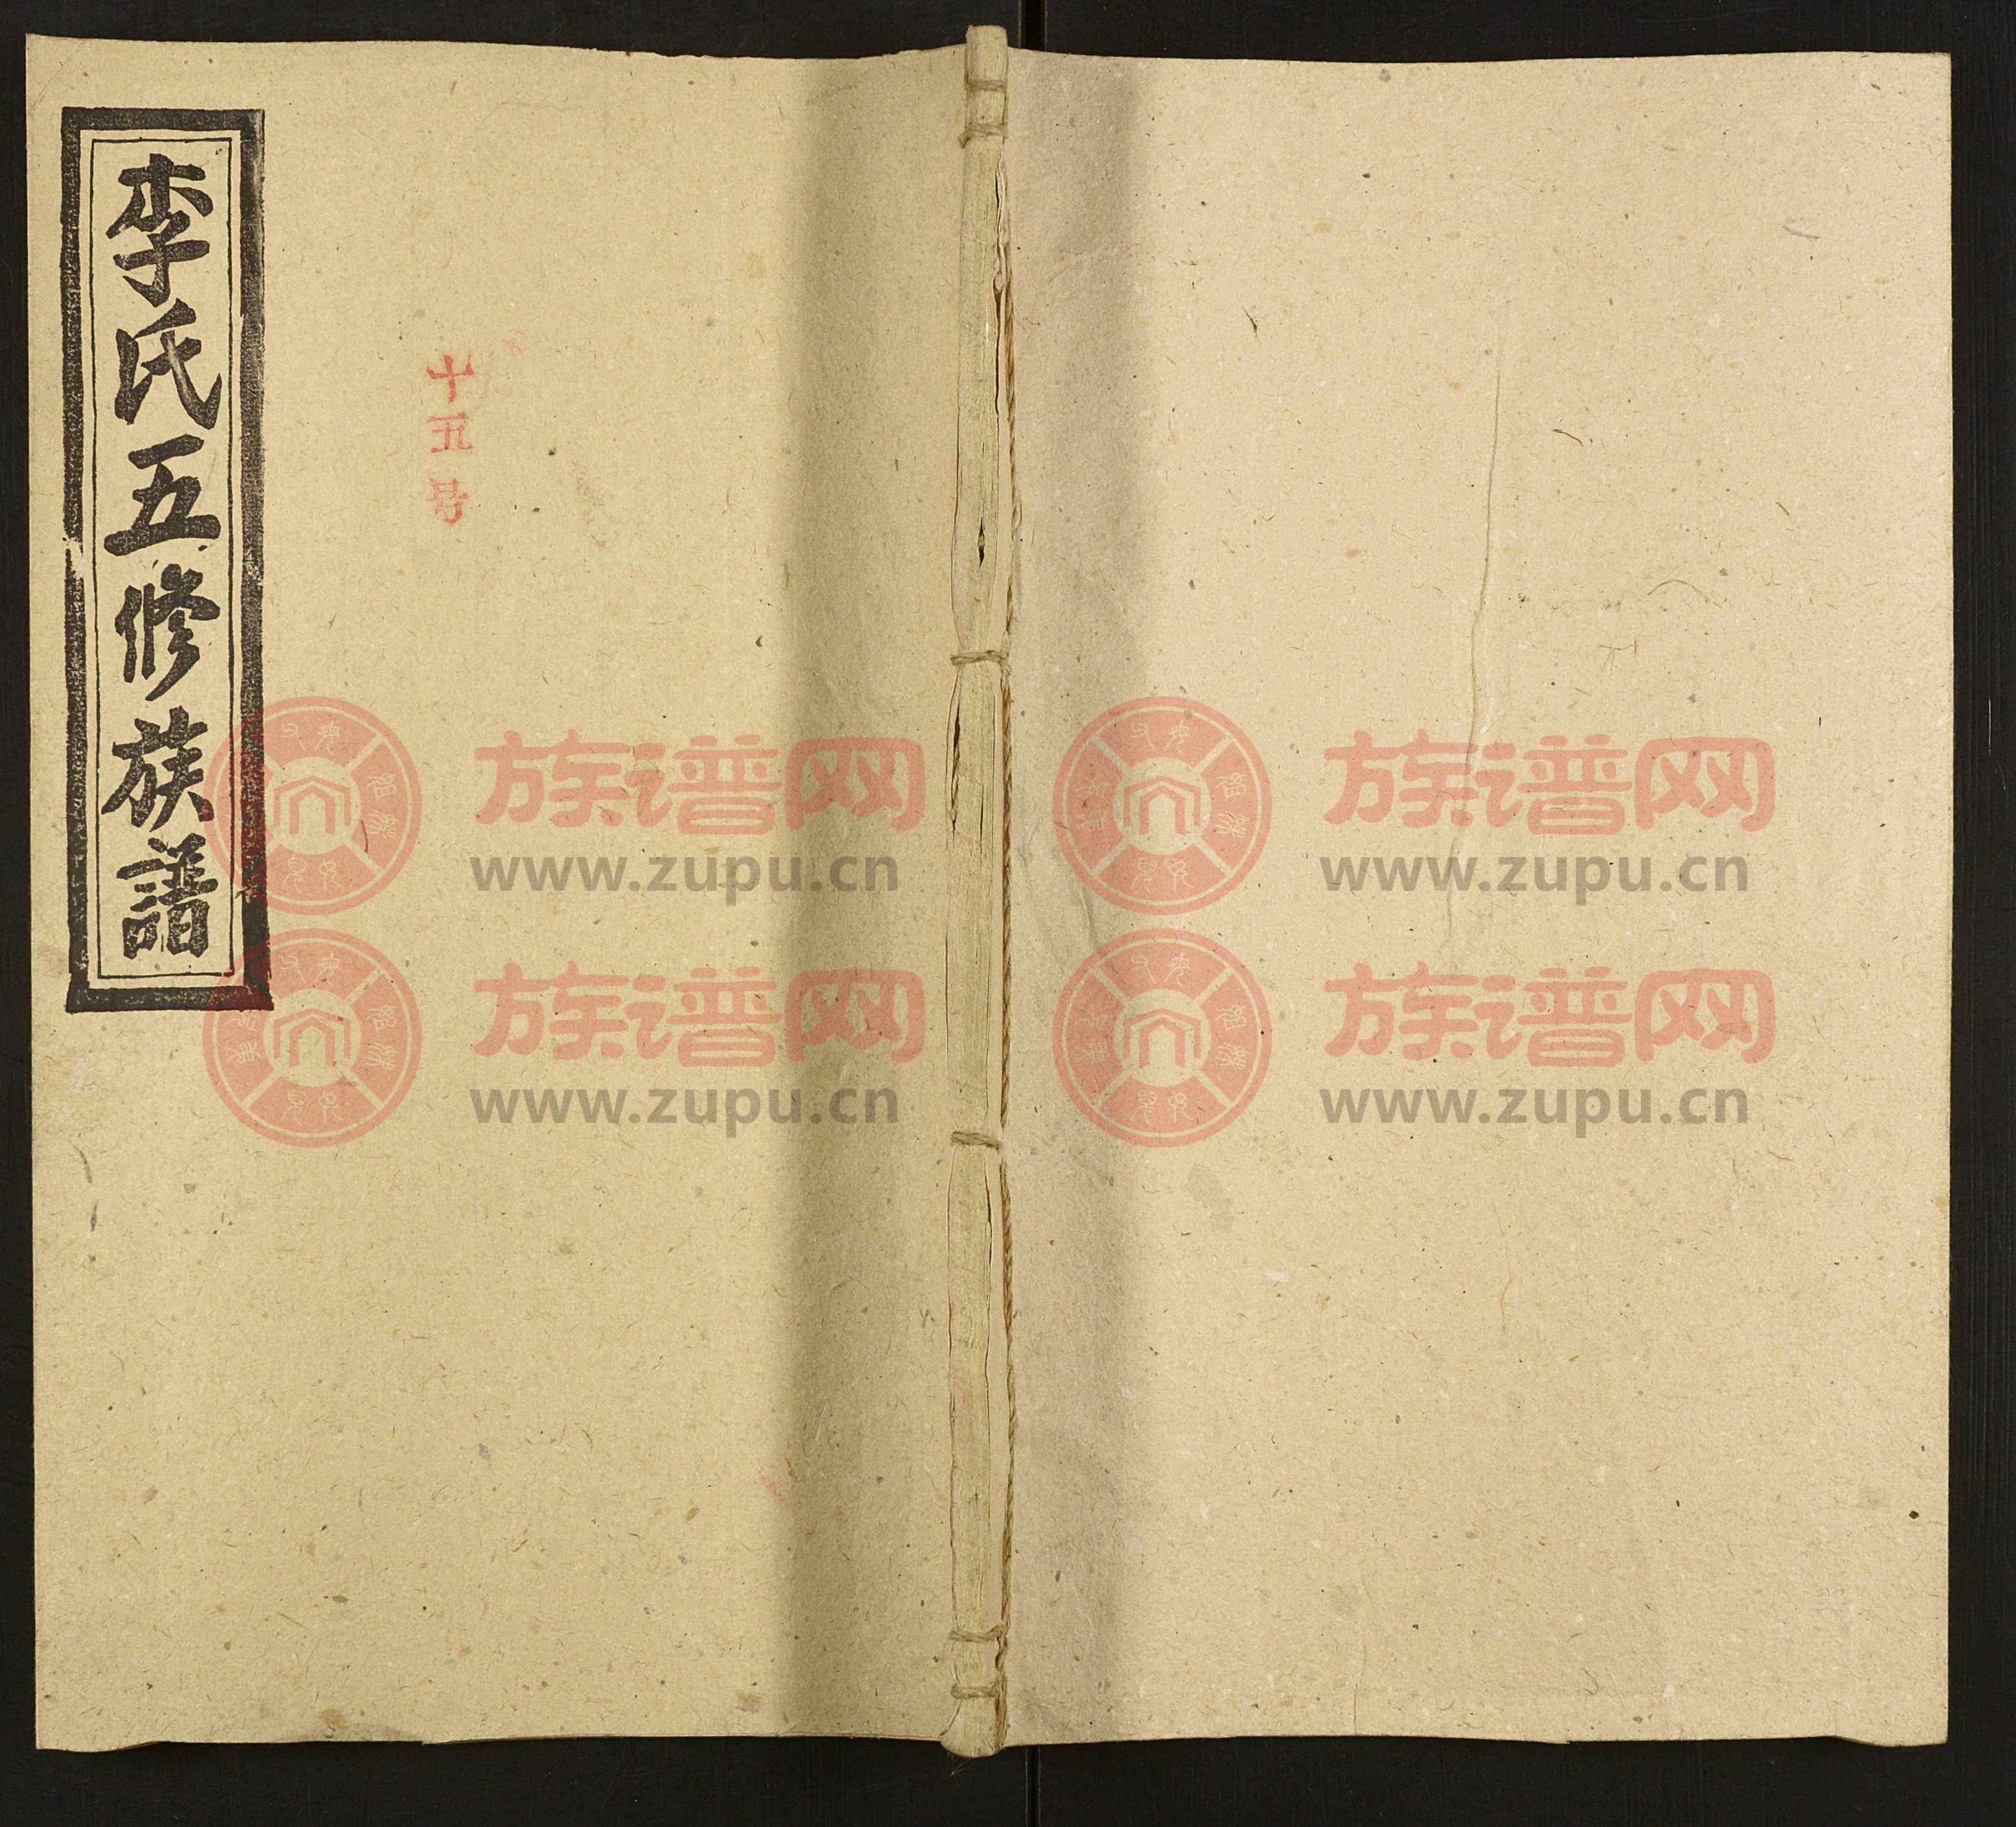 李氏五修族譜
十五号
族谱网 族谱网
www.zupu.cn www.zupu.cn
族谱网 族谱网
www.zupu.cn www.zupu.cn